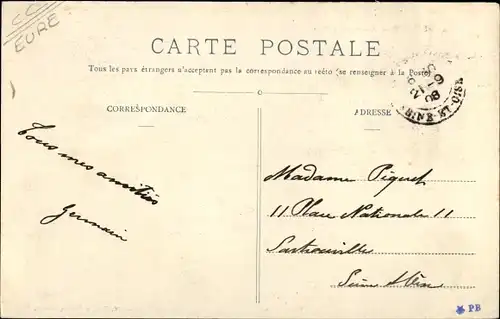 EURE
CARTE POSTALE
Tous les pays étrangers n'acceptent pas la correspondance au recto (se renseigner à la Poste)
CORRESPONDANCE
ADRESSE
08
SEINE-ET-OISE
Tous mes amitiés
Germain
Madame Piquet
11 Place Nationale 11
Sartrouville
Seine & Oise
PB